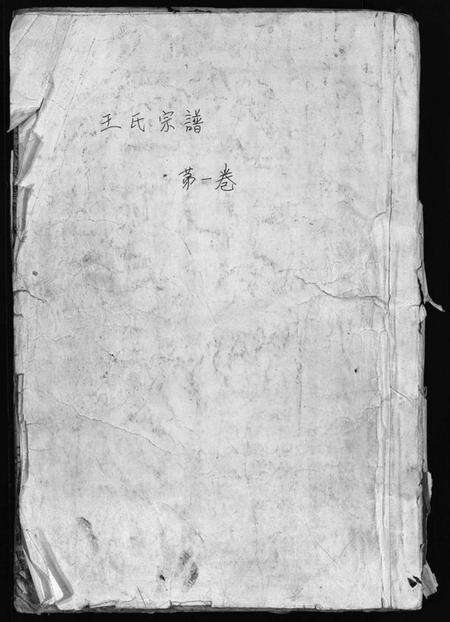 王氏宗譜
第一卷